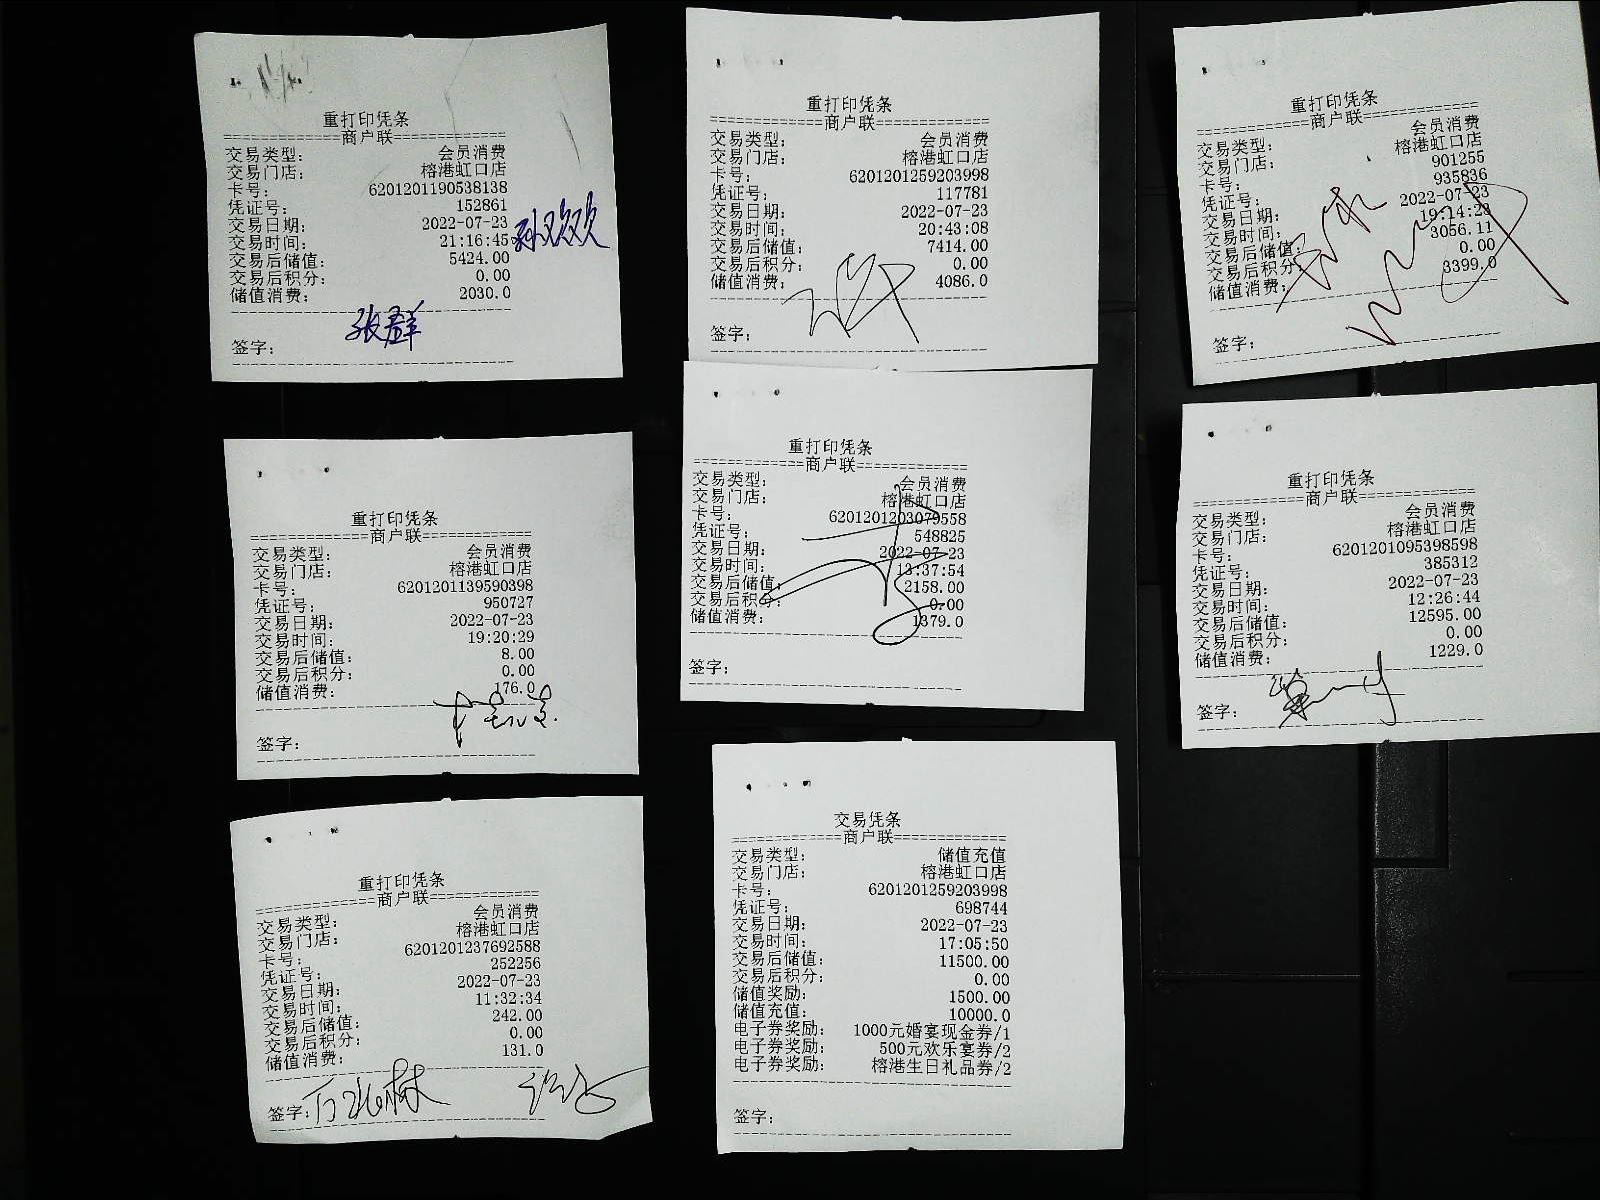 重打印凭条
============商户联============
交易类型： 会员消费
交易门店： 榕港虹口店
卡号： 6201201190538138
凭证号： 152861
交易日期： 2022-07-23
交易时间： 21:16:45
孙欢欢
交易后储值： 5424.00
交易后积分： 0.00
储值消费： 2030.0
张群
签字：
重打印凭条
============商户联============
交易类型： 会员消费
交易门店： 榕港虹口店
卡号： 6201201259203998
凭证号： 117781
交易日期： 2022-07-23
交易时间： 20:43:08
交易后储值： 7414.00
交易后积分： 0.00
储值消费： 4086.0
签字：
重打印凭条
============商户联============
交易类型： 会员消费
交易门店： 榕港虹口店
卡号： 901255
凭证号： 935836
交易日期： 2022-07-23
交易时间： 19:14:23
交易后储值： 3056.11
交易后积分： 0.00
储值消费： 3399.0
签字：
重打印凭条
============商户联============
交易类型： 会员消费
交易门店： 榕港虹口店
卡号： 6201201139590398
凭证号： 950727
交易日期： 2022-07-23
交易时间： 19:20:29
交易后储值： 8.00
交易后积分： 0.00
储值消费： 176.0
签字：
重打印凭条
============商户联============
交易类型： 会员消费
交易门店： 榕港虹口店
卡号： 6201201203079558
凭证号： 548825
交易日期： 2022-07-23
交易时间： 13:37:54
交易后储值： 2158.00
交易后积分： 0.00
储值消费： 1379.0
签字：
重打印凭条
============商户联============
交易类型： 会员消费
交易门店： 榕港虹口店
卡号： 6201201095398598
凭证号： 385312
交易日期： 2022-07-23
交易时间： 12:26:44
交易后储值： 12595.00
交易后积分： 0.00
储值消费： 1229.0
签字：
重打印凭条
============商户联============
交易类型： 会员消费
交易门店： 榕港虹口店
卡号： 6201201237692588
凭证号： 252256
交易日期： 2022-07-23
交易时间： 11:32:34
交易后储值： 242.00
交易后积分： 0.00
储值消费： 131.0
签字：
交易凭条
============商户联============
交易类型： 储值充值
交易门店： 榕港虹口店
卡号： 6201201259203998
凭证号： 698744
交易日期： 2022-07-23
交易时间： 17:05:50
交易后储值： 11500.00
交易后积分： 0.00
储值奖励： 1500.00
储值充值： 10000.0
电子券奖励： 1000元婚宴现金券/1
电子券奖励： 500元欢乐宴券/2
电子券奖励： 榕港生日礼品券/2
签字：